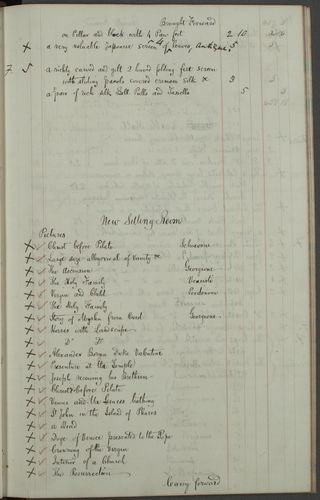 Brought Forward
on Pillar and block with 4 Paw feet 2 10
x a very valuable Japanese screen of 4 leaves, Antique 5
7 5 a richly carved and gilt 2 leaved folding fire screen
with sliding panels covered crimson silk x 3 3
a pair of rich silk Bell Pulls and Tassells 5 5
New Sitting Room
Pictures
x Christ before Pilate Schiavone
x Large size allegorical of Vanity &c
x The Ascension Giorgione
x The Holy Family
x Virgin and Child Pordenone
x The Holy Family
x Story of from Ovid Giorgione
x Horses with Landscape
x Do Do
x Alexander Borgia Duke Valentine
x at the Temple
x Joseph receiving his Brethren
x Christ before Pilate
x Venus and the Graces bathing
x St John in the Island of
x a Head
x Doge of Venice presented to the Pope
x Crowning of the Virgin
x Interior of a Church
x The Resurrection
Carry forward